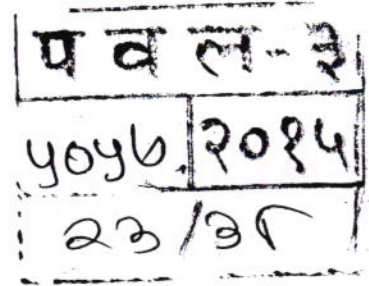 प व ल-३
५०५७ २०१५
२३/३८